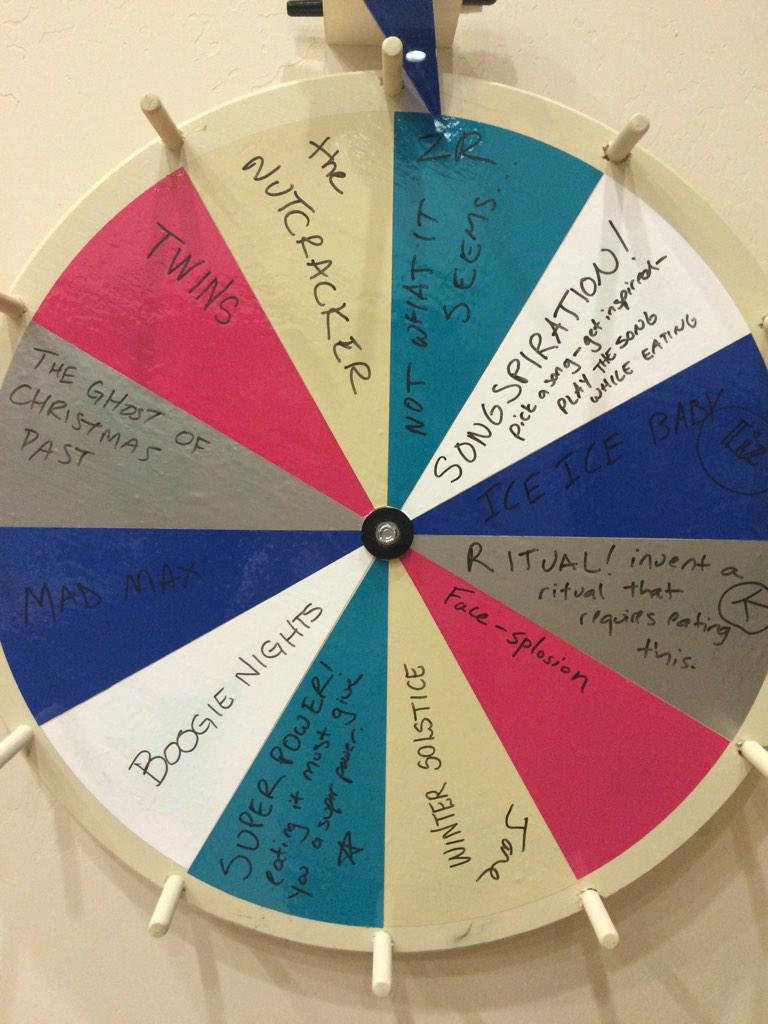 the
NUTCRACKER
ZR
NOT WHAT IT
SEEMS...
SONGSPIRATION!
pick a song - get inspired -
PLAY THE SONG
WHILE EATING
ICE ICE BABY
Liz
RITUAL! invent a
ritual that
requires eating
this.
K
Face-splosion
WINTER SOLSTICE
Jane
SUPER POWER!
eating it must give
you a super power.
BOOGIE NIGHTS
MAD MAX
THE GHOST OF
CHRISTMAS
PAST
TWINS